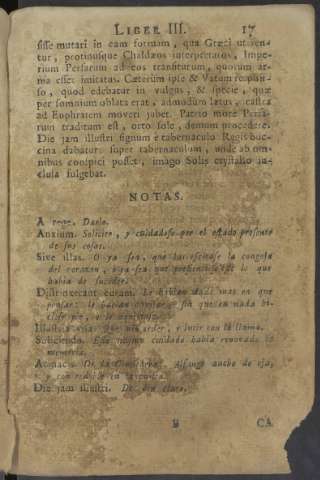 LIBER III. 17
sisse mutari in eam formam, qua Græci uteren-
tur, protinusque Chaldæos interpretatos, Impe-
rium Persarum ad eos transiturum, quorum ar-
ma esset imitatus. Cæterùm ipse & Vatum responso
, quod edebatur in vulgus, & specie, quæ
per somnium oblata erat, admodùm lætus, castra
ad Euphratem moveri jubet. Patrio more Persa-
rum traditum est, orto sole, demùm procedere.
Die jam illustri signum è tabernaculo Regis buc-
cina dabatur: super tabernaculum, unde ab om-
nibus conspici posset, imago Solis crystallo in-
clusa fulgebat.
NOTAS.
A rege. Dario.
Anxium. Solicito, y cuidadoso por el estado presente
de sus cosas.
Sive illas. O ya sea, que las excitase la congoja
del corazon, o ya sea que
habia de suceder.
curam. en que
sin que en nada hi-
Illustria arder, y lucir con
Este mismo cuidado habia renovado la
memoria.
Alfange ancho de
Die jam illustri. De dia claro.
B CA-